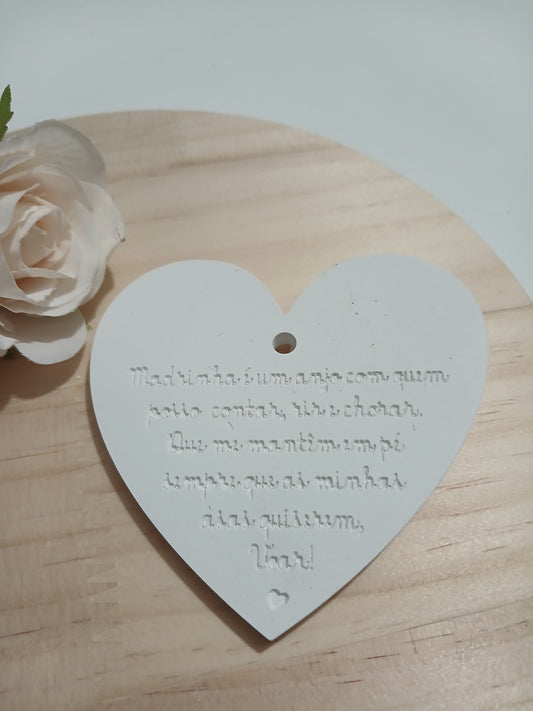 Madrinha é um anjo com quem
posso contar, rir e chorar.
Que me mantêm em pé
sempre que as minhas
asas quiserem,
Voar!